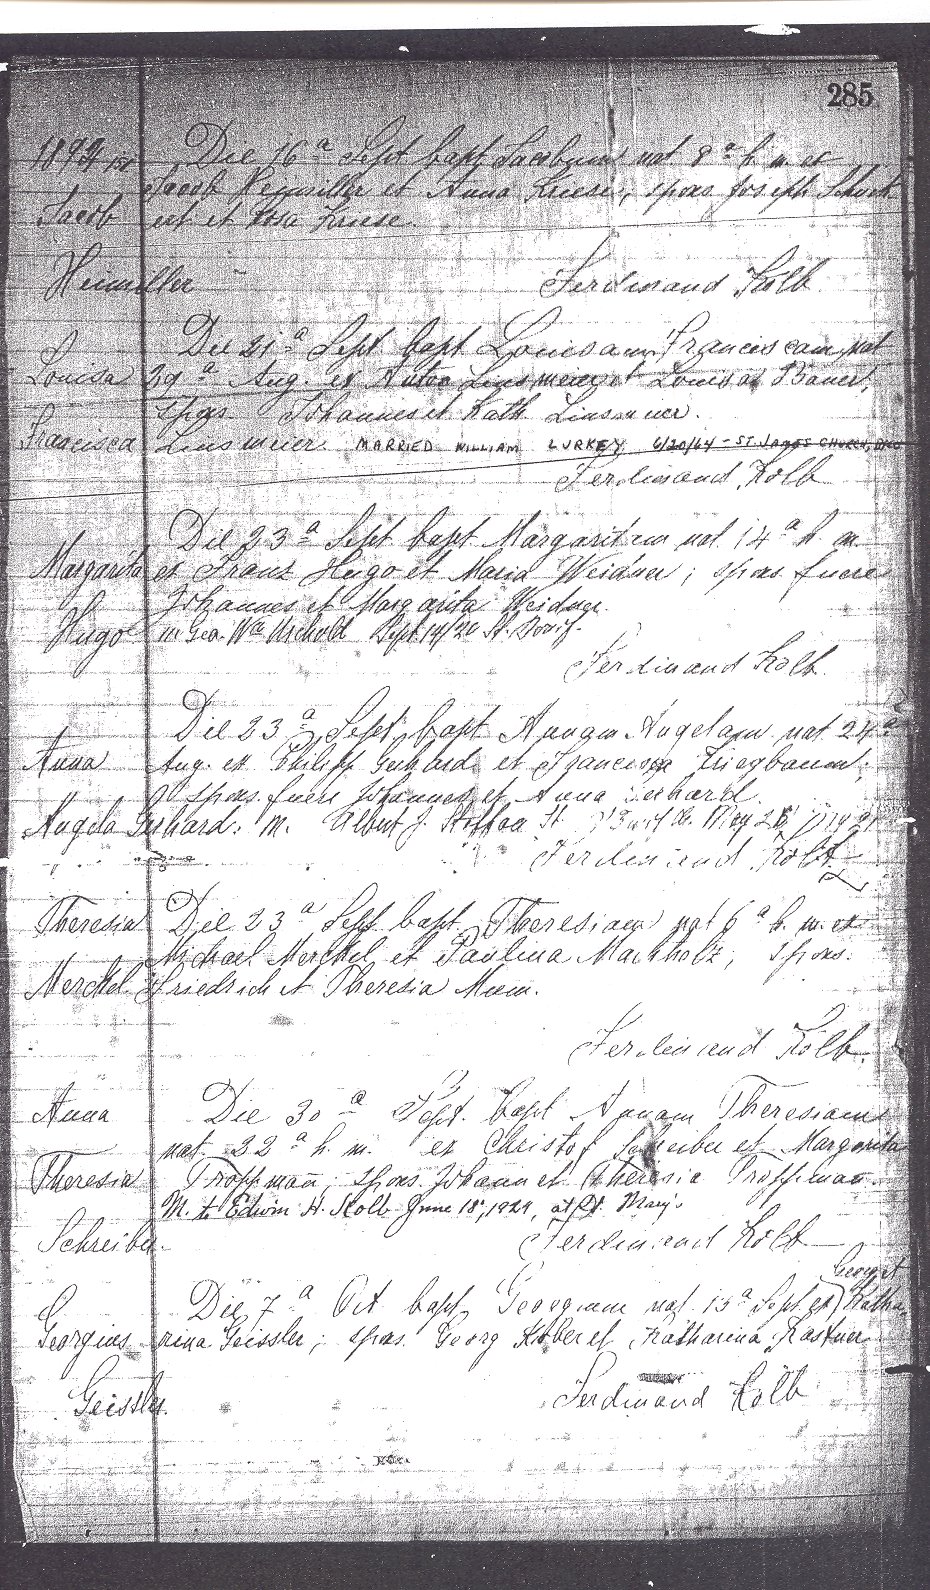 285
1894
Die 16ª Sept bapt Jacobum nat 8ª h. m. ex
Jacob Heimiller et Anna Kriese, spons Joseph Schuck
Jacob ert et Rosa Kriese.
Heimiller Ferdinand Kolb
Die 21ª Sept. bapt Louisam Franciscam nat
Louisa 29ª Aug. ex Anton Linsmeier et Louisa Bauer,
spons Johannes et Kath Linsmeier.
Francisca Linsmeier MARRIED WILLIAM LURKEY 6/20/64 - ST JAMES CHURCH,
Ferdinand Kolb
Die 23ª Sept bapt Margaritam nat 14ª h. m.
Margarita ex Franz Hugo et Maria Weidner; spons fuere
Johannes et Margarita Weidner.
Hugo m Geo. Wm Sept 14/20 St.
Ferdinand Kolb.
Die 23ª Sept bapt Annam Angelam nat 24ª
Anna Aug. ex Philipp Gerhard et Francisca
spons. fuere Johannes et Anna Gerhard.
Angela Gerhard. m. Albert J. St. May
Ferdinand Kolb
Theresia Die 23ª Sept bapt Theresiam nat 6ª h. m. ex
Michael Merckel et Paulina Machholz, spons.
Merckel Friedrich et Theresia
Ferdinand Kolb.
Anna Die 30ª Sept. bapt Annam Theresiam
nat. 22ª h. m. ex Christof Schreiber et Margarita
Theresia Troppmann, spons. Johann et Theresia Troppmann.
M. to Edwin H. Kolb June 18, 1924, at St. Mary's
Schreiber. Ferdinand Kolb
Georg et
Die 7ª Oct bapt Georgium nat. 15ª Sept. ex Katha
Georgius rina Geissler; spons. Georg Kober et Katharina Kastner
Geissler. Ferdinand Kolb